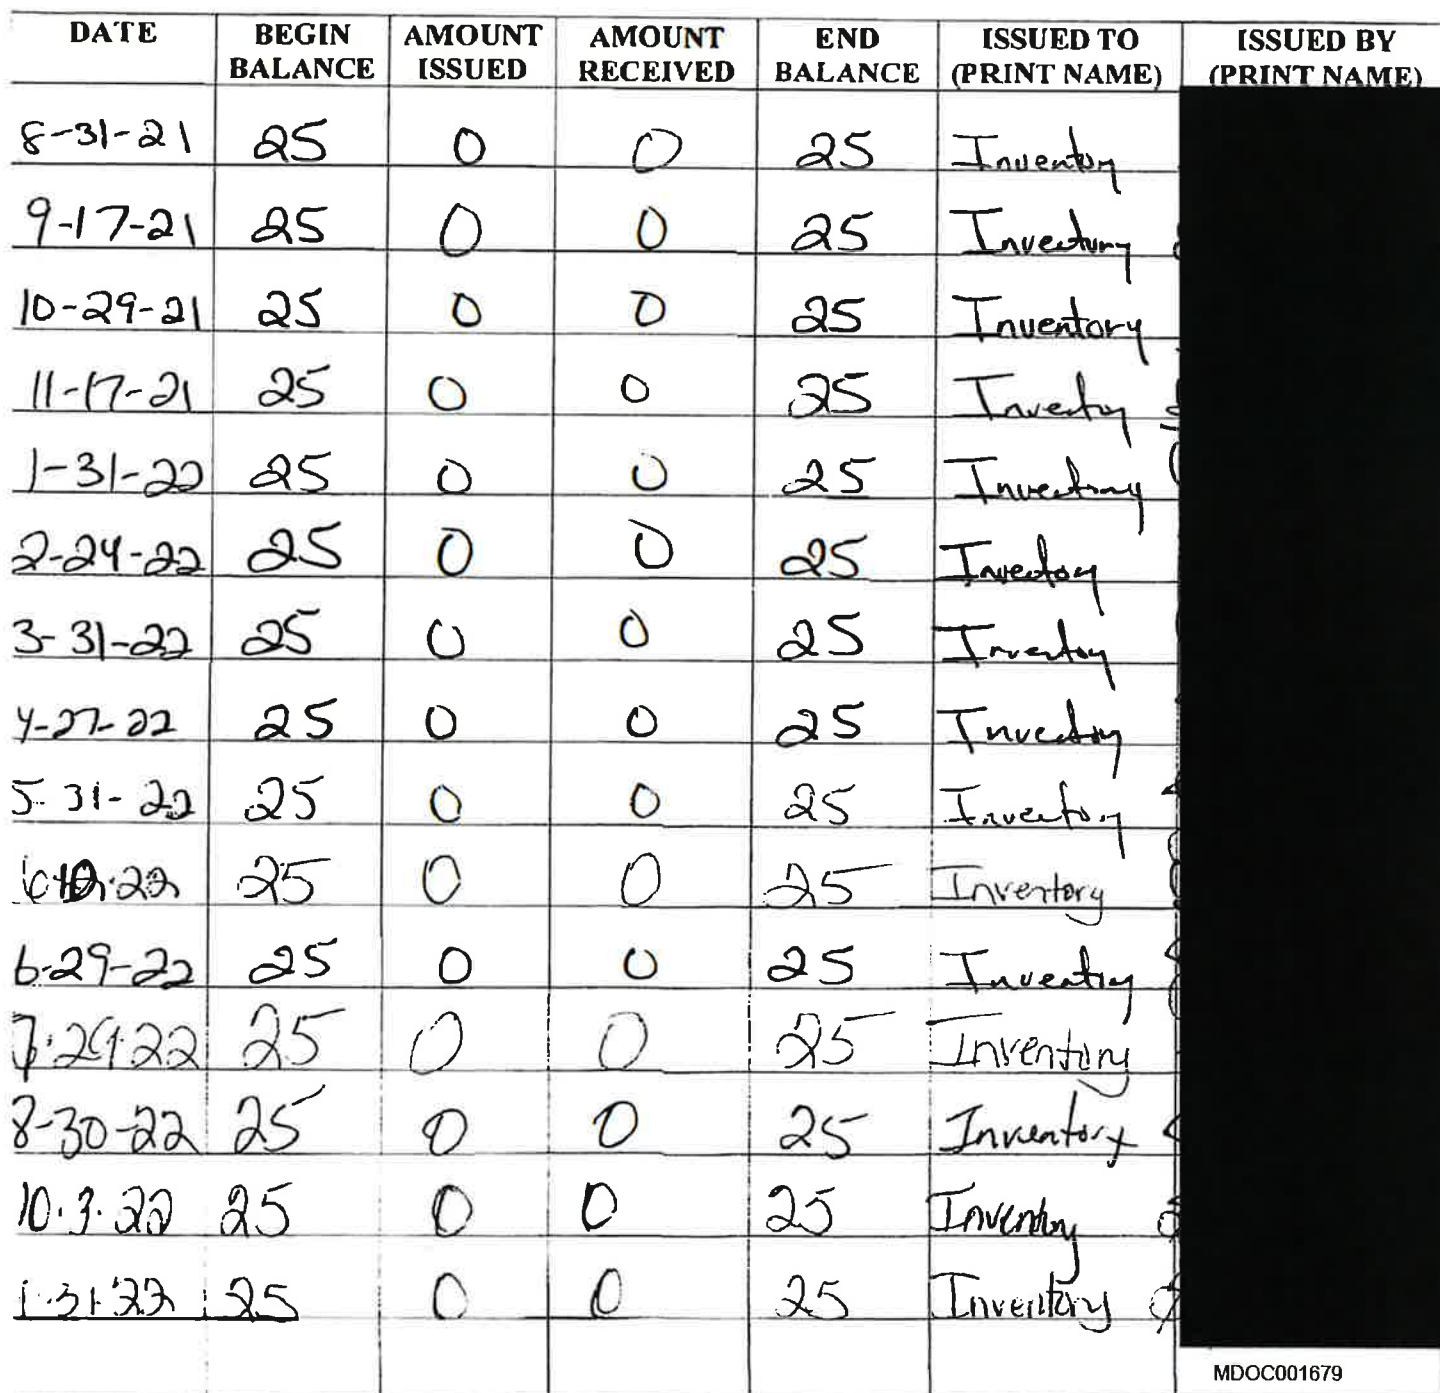 DATE BEGIN BALANCE AMOUNT ISSUED AMOUNT RECEIVED END BALANCE ISSUED TO (PRINT NAME) ISSUED BY (PRINT NAME)
8-31-21 25 0 0 25 Inventory
9-17-21 25 0 0 25 Inventory
10-29-21 25 0 0 25 Inventory
11-17-21 25 0 0 25 Inventory
1-31-22 25 0 0 25 Inventory
2-24-22 25 0 0 25 Inventory
3-31-22 25 0 0 25 Inventory
4-27-22 25 0 0 25 Inventory
5-31-22 25 0 0 25 Inventory
25 0 0 25 Inventory
6-29-22 25 0 0 25 Inventory
7.29.22 25 0 0 25 Inventory
8-30-22 25 0 0 25 Inventory
10.3.22 25 0 0 25 Inventory
1.31.22 25 0 0 25 Inventory
MDOC001679